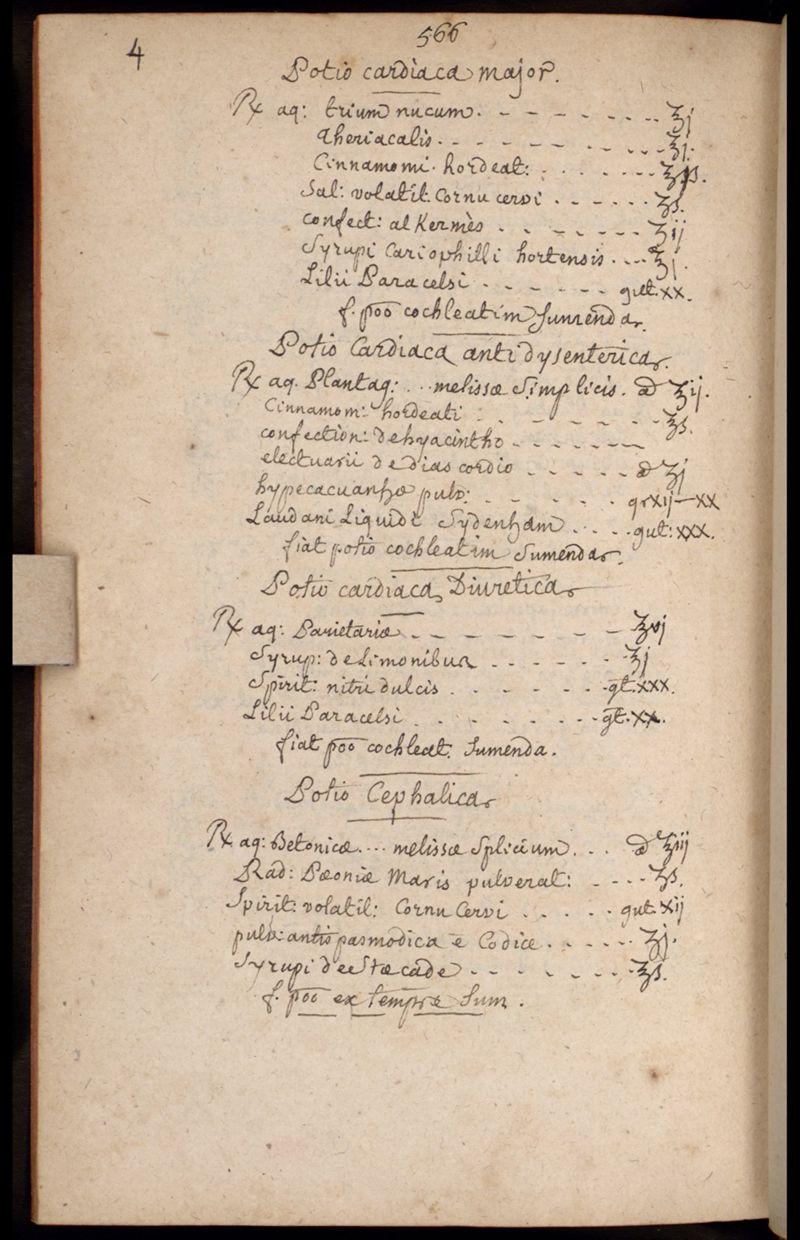 566
4
Potio cardiaca major.
℞ aq: trium nucum. - - - - - - - .. ʒj
theriacalis. - - - - - - - - - ʒj.
Cinnamomi. hordeat: . . . . - - - .
Sal: volatil. Cornu cervi . - - - - - ʒs.
confect: alKermès - - - - - - - ʒij
Syrupi Cariophilli hortensis . - - - ʒj.
Lilii Paracelsi - - - - - - gut. xx.
f. poo cochleatim Sumenda.
Potio Cardiaca antidysenterica.
℞ aq. Plantag: ... melissæ Simplicis. aā ʒij.
Cinnamom: hordeati - - - - - - - ʒs.
confection: de hyacintho - - - - - - -
electuarii de dias cordio - - - - - aā ʒj
hypecacuanhæ pulv: - - - - . . grxij—xx
Laudani Liquidi Sydenham . . . . gut: xxx.
fiat potio cochleatim Sumenda.
Potio cardiaca Diuretica
℞ aq: Parietariæ - - - - - - - ʒvj
Syrup: de Limonibus - - - - - - ʒj
Spirit: nitri dulcis . - - - - - - gt. xxx.
Lilii Paracelsi . - - - - - - - gt. xx.
fiat poo cochleat. Sumenda.
Potio Cephalica
℞ aq: Betonicæ.... melissæ Splicium. . . aā ʒiij
Rad: Pæoniæ Maris pulverat: - - - - ʒs.
Spirit: volatil: Cornu Cervi . . . . . gut. xij
pulv: antispasmodica e Codice . - - - - - ʒj.
Syrupi de Stæcade - - - - - - - - ʒs.
f. poo ex tempræ Sum.